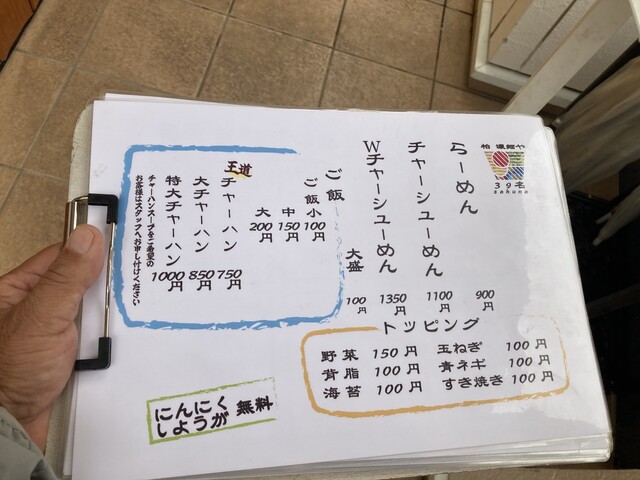 柏 濃麺や
39名
sahuna
らーめん 900円
チャーシューめん 1100円
Wチャーシューめん 1350円
大盛 100円
ご飯
ご飯小 100円
中 150円
大 200円
王道
チャーハン 750円
大チャーハン 850円
特大チャーハン 1000円
チャーハンスープをご希望の
お客様はスタッフへお申し付けください
トッピング
野菜 150円 玉ねぎ 100円
背脂 100円 青ネギ 100円
海苔 100円 すき焼き 100円
にんにく
しょうが 無料